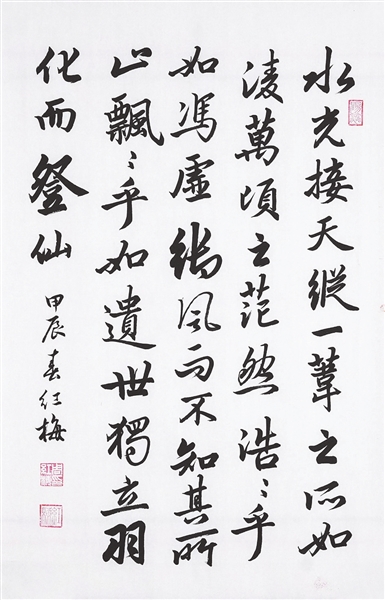 水光接天縱一葦之所如
凌萬頃之茫然浩〻乎
如馮虛御風而不知其所
止飄〻乎如遺世獨立羽
化而登仙
甲辰春紅梅